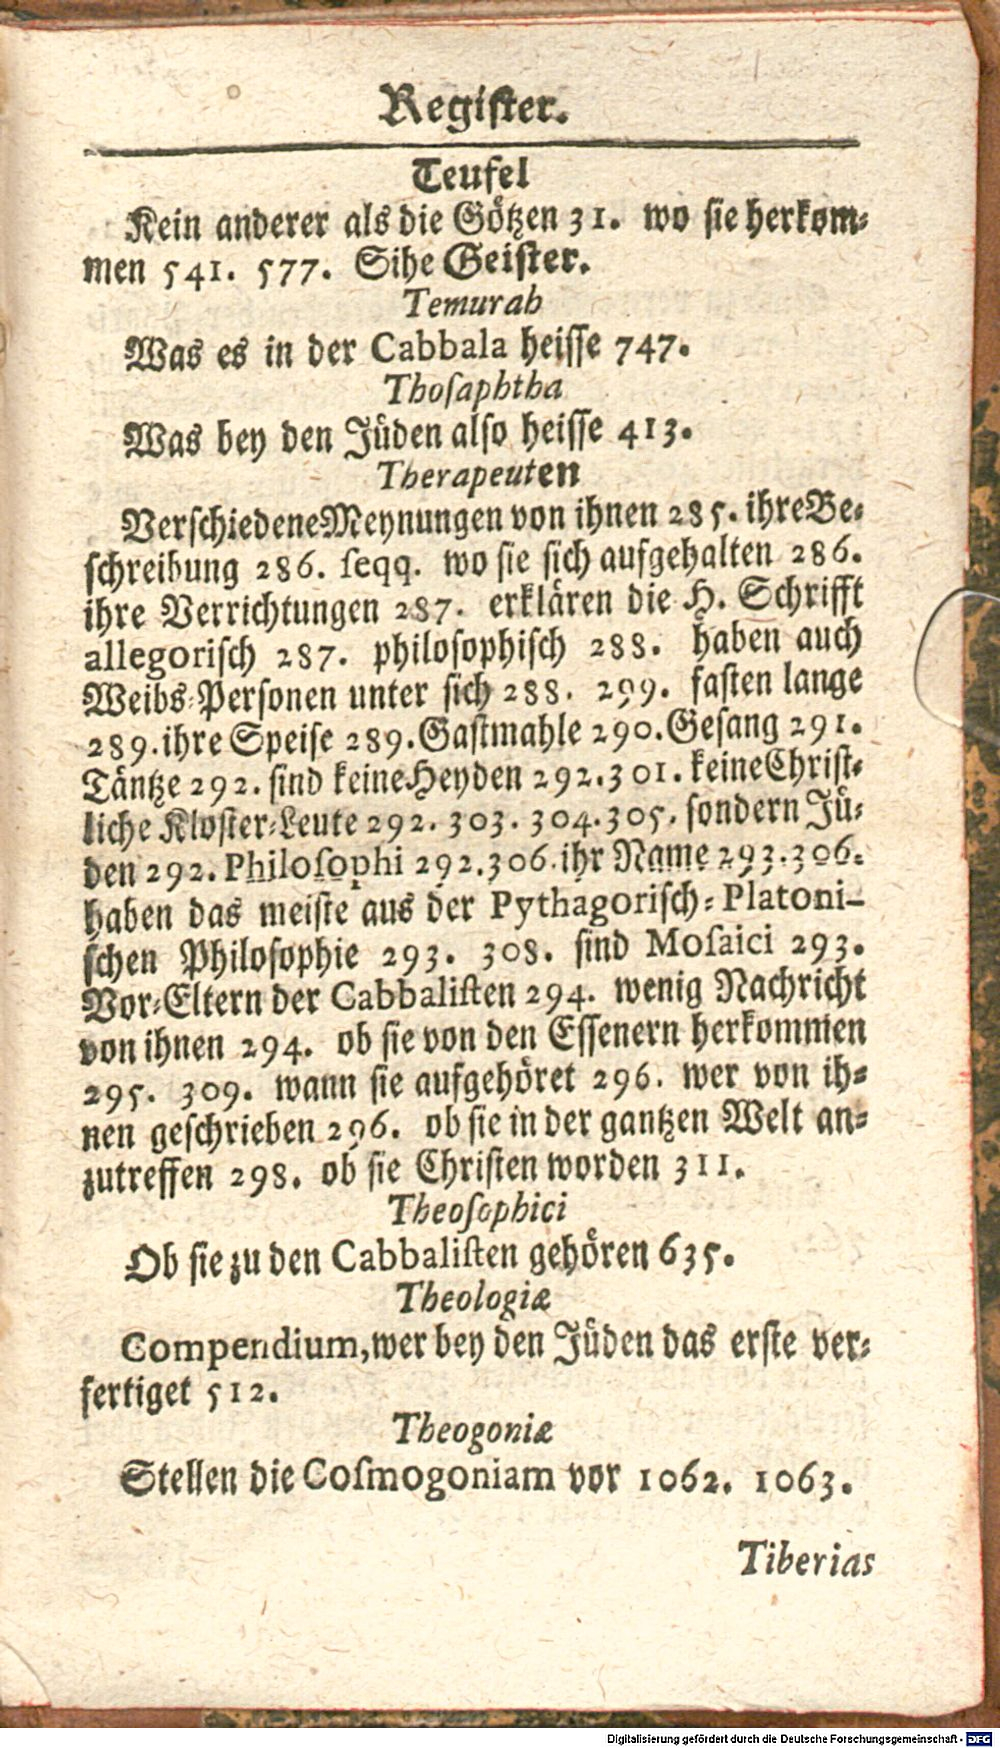 Register.
Teufel
Kein anderer als die Götzen 31. wo sie herkom-
men 541. 577. Sihe Geister.
Temurah
Was es in der Cabbala heisse 747.
Thosaphtha
Was bey den Jüden also heisse 413.
Therapeuten
Verschiedene Meynungen von ihnen 285. ihre Be-
schreibung 286. seqq. wo sie sich aufgehalten 286.
ihre Verrichtungen 287. erklären die H. Schrifft
allegorisch 287. philosophisch 288. haben auch
Weibs-Personen unter sich 288. 299. fasten lange
289. ihre Speise 289. Gastmahle 290. Gesang 291.
Täntze 292. sind keine Heyden 292. 301. keine Christ-
liche Kloster-Leute 292. 303. 304. 305. sondern Jü-
den 292. Philosophi 292. 306. ihr Name 293. 306.
haben das meiste aus der Pythagorisch-Platoni-
schen Philosophie 293. 308. sind Mosaici 293.
Vor-Eltern der Cabbalisten 294. wenig Nachricht
von ihnen 294. ob sie von den Essenern herkommen
295. 309. wann sie aufgehöret 296. wer von ih-
nen geschrieben 296. ob sie in der gantzen Welt an-
zutreffen 298. ob sie Christen worden 311.
Theosophici
Ob sie zu den Cabbalisten gehören 635.
Theologiæ
Compendium, wer bey den Jüden das erste ver-
fertiget 512.
Theogoniæ
Stellen die Cosmogoniam vor 1062. 1063.
Tiberias
Digitalisierung gefördert durch die Deutsche Forschungsgemeinschaft - DFG